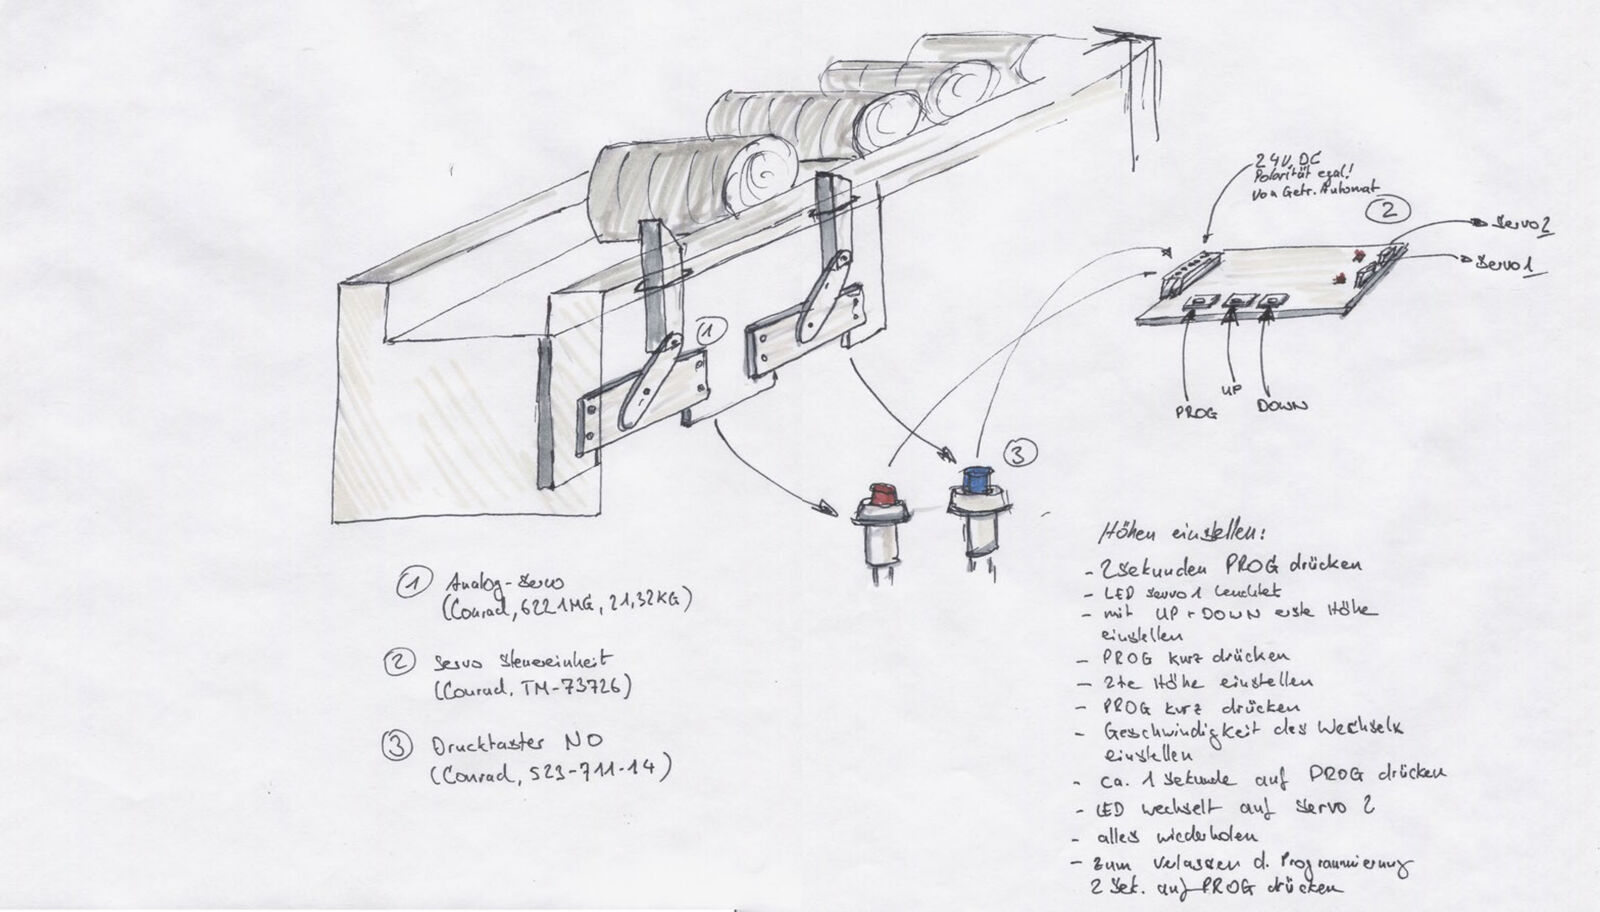 24V, DC
Polarität egal!
von Getr. Automat
2
Servo 2
Servo 1
PROG
UP
DOWN
1
3
1 Analog-Servo
(Conrad, 6221MG, 21,32KG)
2 Servo Steuereinheit
(Conrad, TM-73726)
3 Drucktaster NO
(Conrad, 523-711-14)
Höhen einstellen:
- 2 Sekunden PROG drücken
- LED Servo 1 leuchtet
- mit UP + DOWN erste Höhe
einstellen
- PROG kurz drücken
- 2te Höhe einstellen
- PROG kurz drücken
- Geschwindigkeit des Wechsels
einstellen
- ca. 1 Sekunde auf PROG drücken
- LED wechselt auf Servo 2
- alles wiederholen
- zum Verlassen d. Programmierung
2 Sek. auf PROG drücken